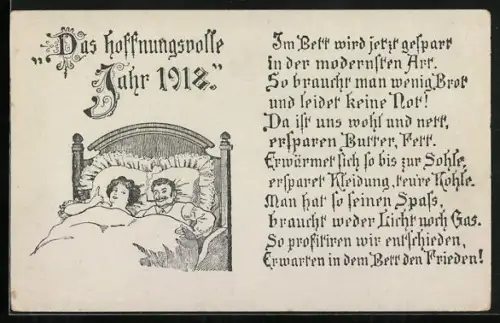 „Das hoffnungsvolle
Jahr 1918.“
Im Bett wird jetzt gespart
in der modernsten Art.
So braucht man wenig Brot
und leidet keine Not!
Da ist uns wohl und nett,
ersparen Butter, Fett.
Erwärmet sich so bis zur Sohle,
ersparet Kleidung, teure Kohle.
Man hat so seinen Spass,
braucht weder Licht noch Gas.
So profitiren wir entschieden,
Erwarten in dem Bett den Frieden!